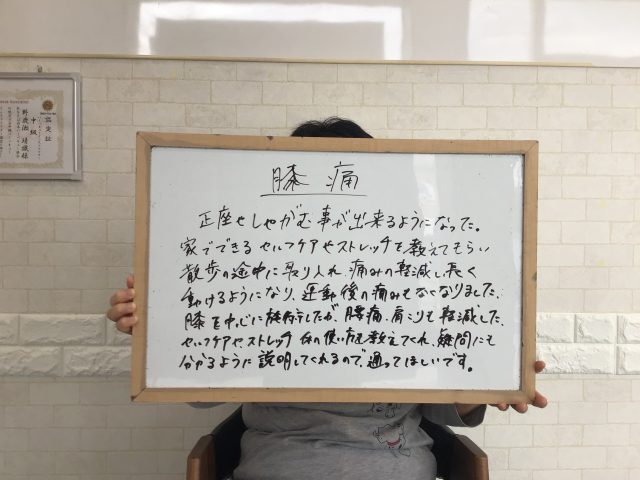 認定証
中級
膝痛
正座やしゃがむ事が出来るようになった。
家でできるセルフケアやストレッチを教えてもらい
散歩の途中に取り入れ痛みの軽減し長く
動けるようになり、運動後の痛みもなくなりました。
膝を中心に施術でしたが、腰痛、肩こりも軽減した。
セルフケアやストレッチ体の使い方を教えてくれ、疑問にも
分かるように説明してくれるので、通ってほしいです。